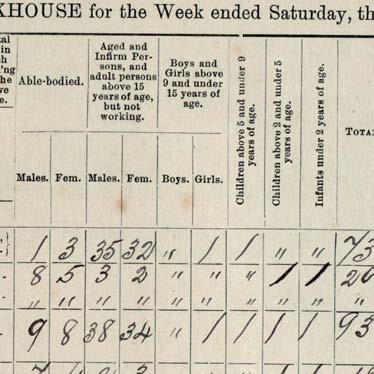 KHOUSE for the Week ended Saturday, th
Able-bodied.
Aged and
Infirm Per-
sons, and
adult persons
above 15
years of age,
but not
working.
Boys and
Girls above
9 and under
15 years of
age.
Children above 5 and under 9
years of age.
Children above 2 and under 5
years of age.
Infants under 2 years of age.
Males. Fem. Males. Fem. Boys. Girls.
1 3 35 32 " 1 1 " " 73
8 5 3 2 " " " 1 1 20
" " " " " " " " " "
9 8 38 34 " 1 1 1 1 93